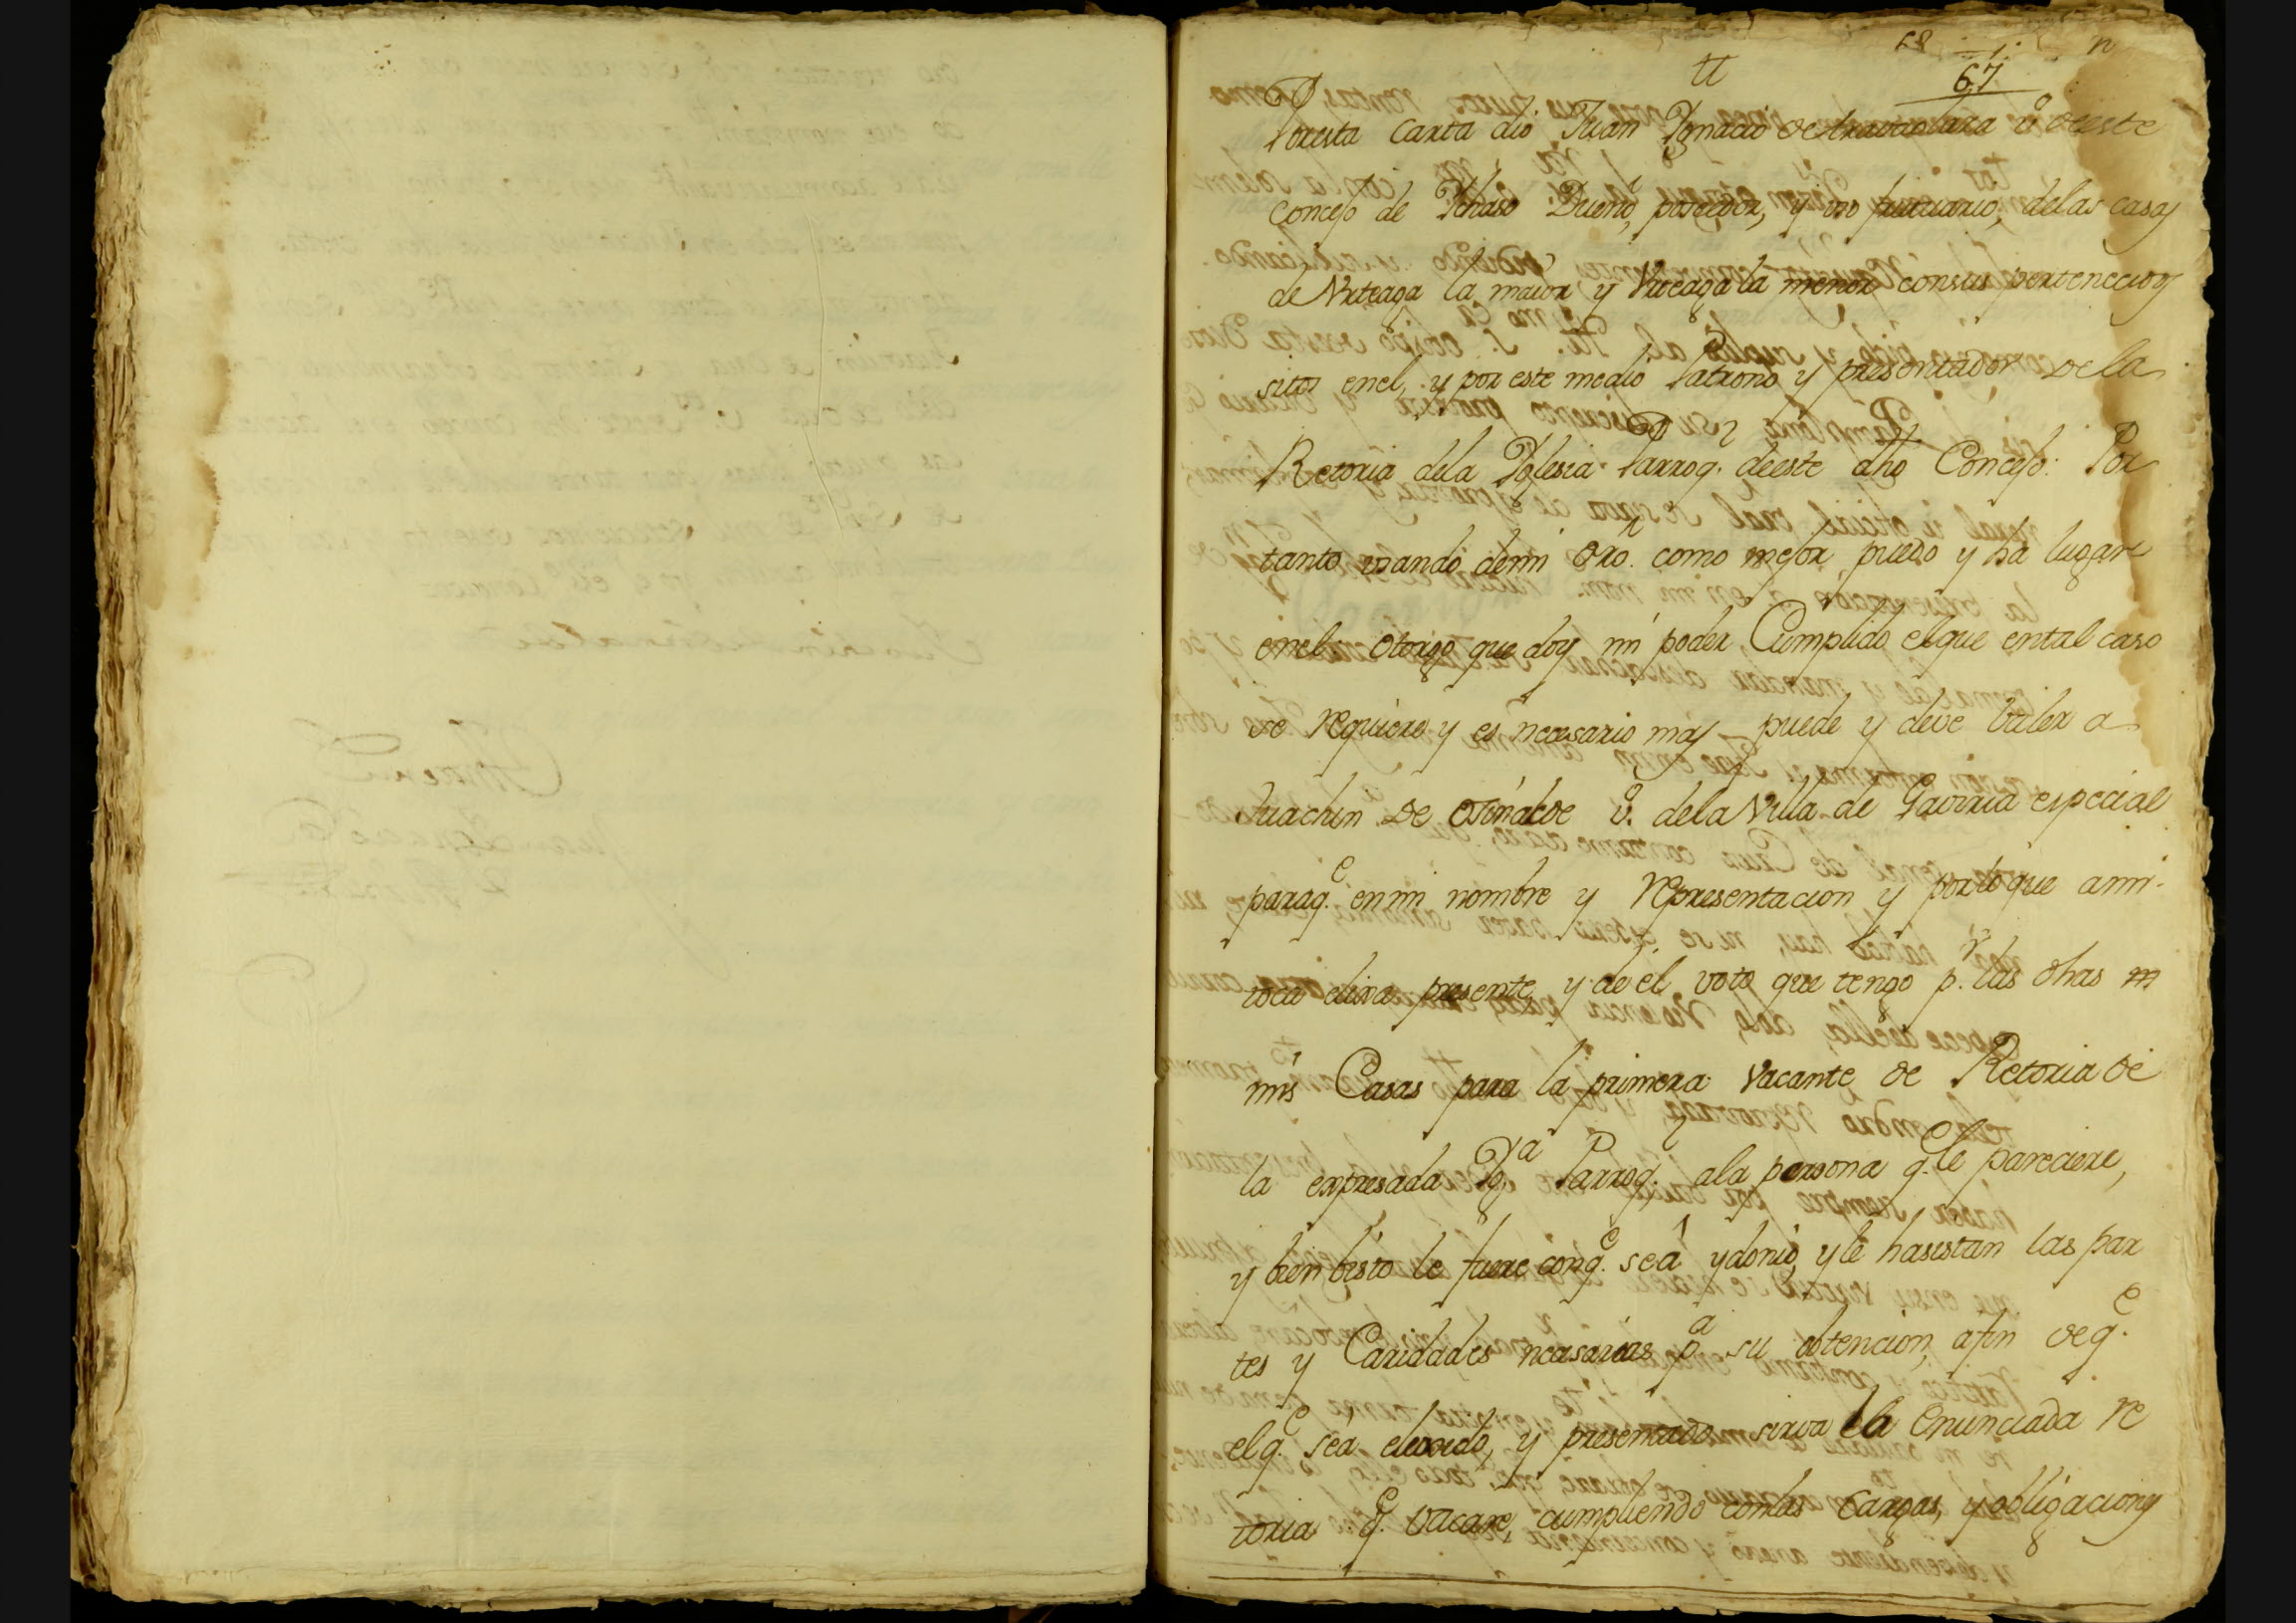 68
n
tt
67
Por esta Carta dio Juan Ygnacio de v.º de este
Concejo de Ydiaso Dueño, poseedor, y uso frutuario, delas casas
de Vrteaga la maior, y Vrteaga la menor con sus pertenecciones
sitos enel, y por este medio Patrono y presentador de la
Retoria dela Yglesia Parroq.l de este dho Concejo: Por
tanto usando de mi dro. como mejor puedo y ha lugar
enel otorgo que doy mi poder Cumplido el que ental caso
se requiere y es necesario mas puede y deve baler a
Juachin de Osinalde v.º dela Villa de Gaviria especial
paraq.e en mi nombre y representacion y por lo que ami
toca elixa, presente, y de el voto que tengo p.r las dhas m
mis Casas para la primera vacante de Retoria de
la expresada Yg.a Parroq.l ala persona q.e le pareciere,
y bien bisto le fuere conq.e sea ydonio, y le hasistan las par
tes y Caridades necesarias p.a su obtencion, afin deq.e
elq.e sea elexido, y presentado sirva la Enunciada re
toria q.e vacare, cumpliendo conlas Cargas, y obligaciones